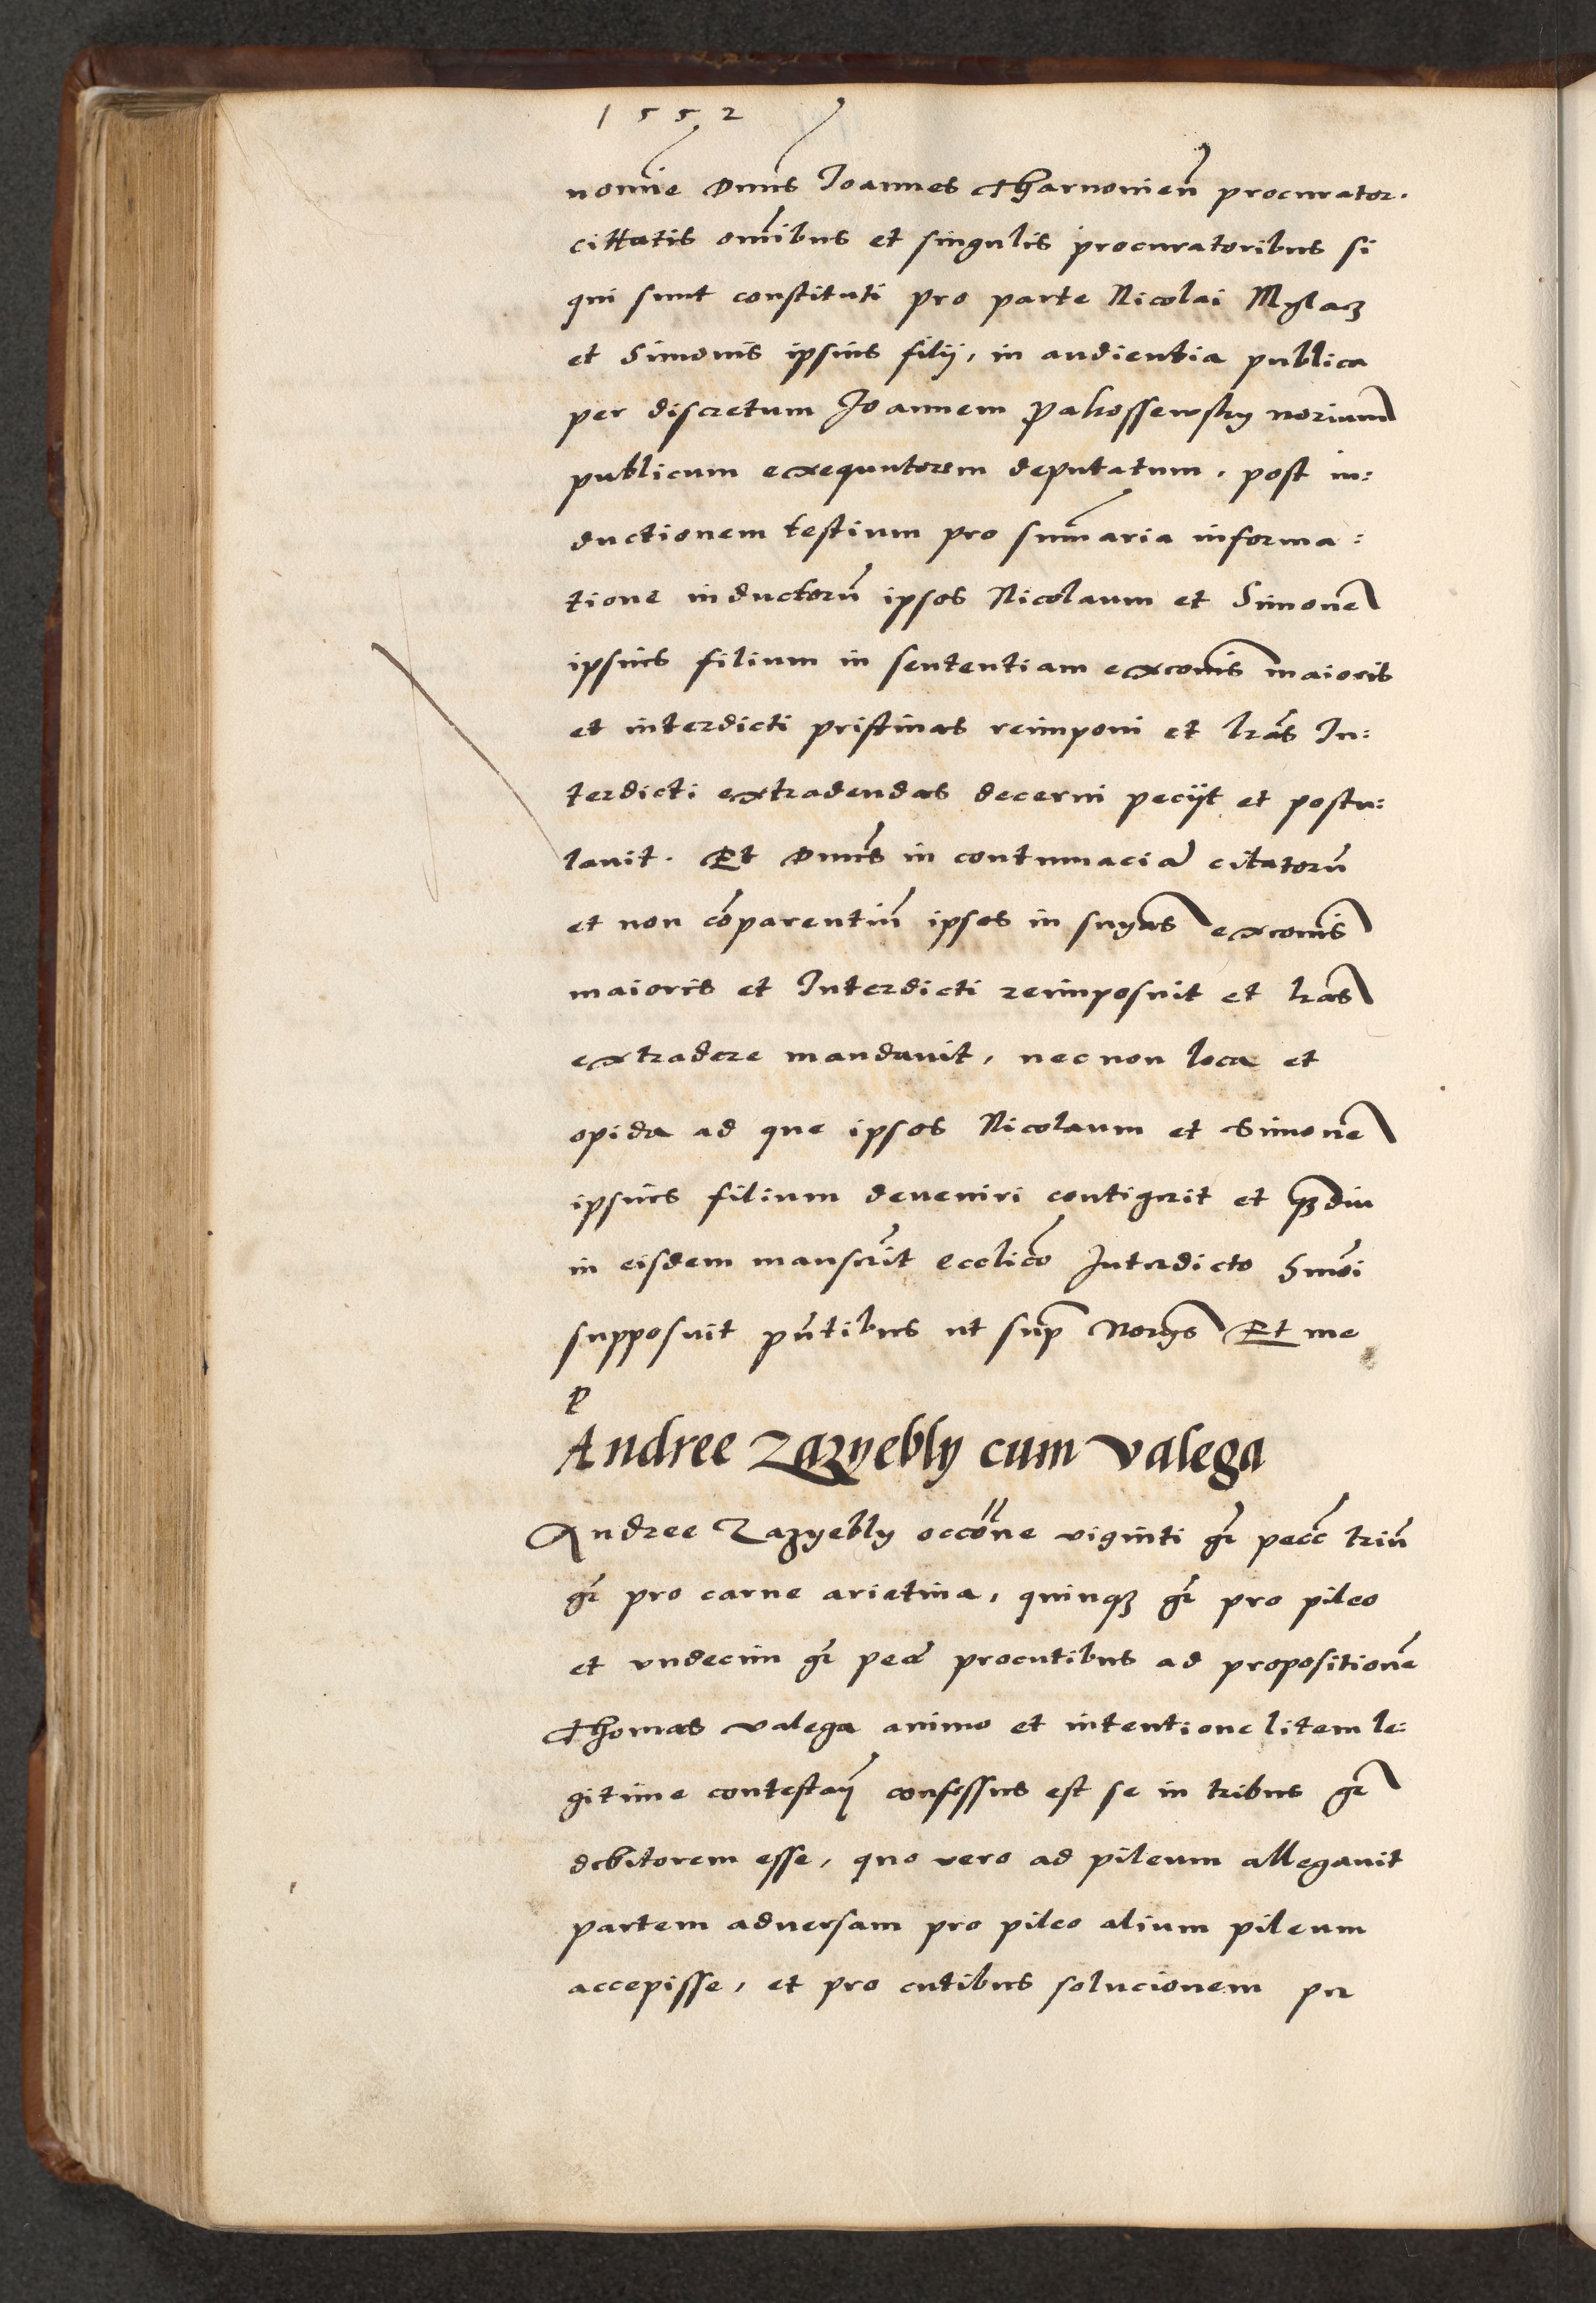 1552
nomīe Dn̄us Joannes Tharnovien̄ procurator.
cittatis om̄ibus et singulis procuratoribus si
qui sunt constituti pro parte Nicolai Mylacz
et Simonis ipsius filij, in audientia publica
per discretum Joannem Pakossewsky norium
publicum exequutorem deputatum, post in:
ductionem testium pro sum̄aria informa:
tione inductorū ipsos Nicolaum et Simone
ipsius filium in sententiam excōnis maioris
et interdicti pristinas reimponi et lr̄as In:
terdicti extradendas decerni pecijt et postu:
lavit. Et Dn̄us in contumaciā citatorū
et non cōparentiū ipsos in snyas excōnis
maioris et Interdicti reimposuit et lr̄as
extradere mandavit, nec non loca et
opida ad que ipsos Nicolaum et Simone
ipsius filium deveniri contigerit et qȝdiu
in eisdem manserīt ecclīco Interdicto
supposuit pn̄tibus ut sup Norys Et me
P
Andree Zazyebly cum Valega
Andree Zazyebly occōne viginti gr̄ pecc̄ triū
gr̄ pro carne arietina, quinqȝ gr̄ pro pileo
et undecim gr̄ pecc̄ procutibus ad propositionē
Thomas Valega animo et intentione litem le:
gitime contestaņ confessus est se in tribus gr̄
debitorem esse, quo vero ad pileum allegavit
partem adversam pro pileo alium pileum
accepisse, et pro cutibus solucionem per